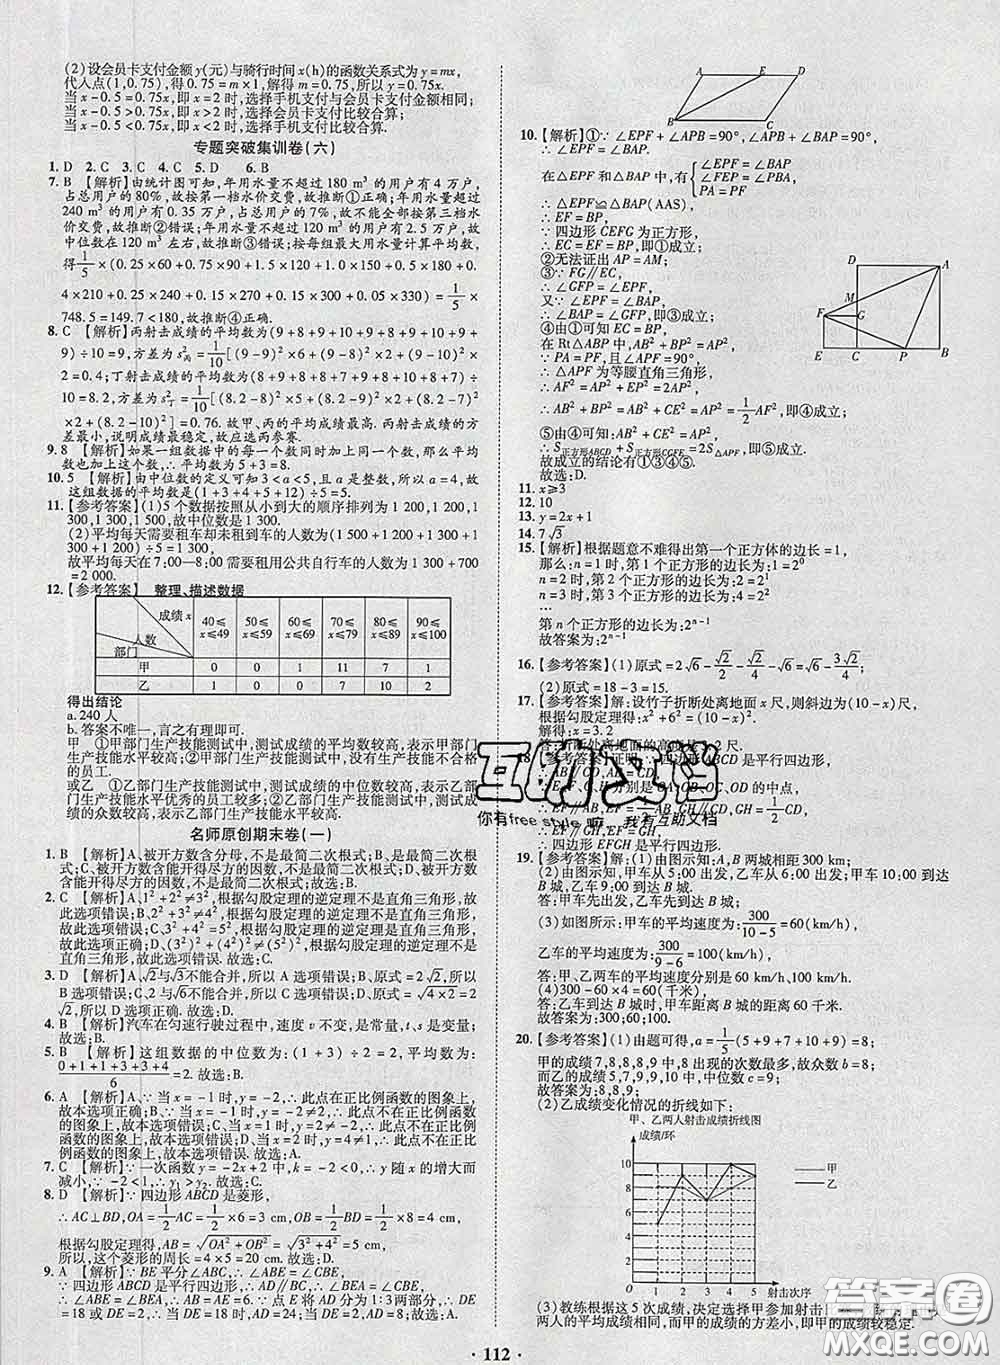 (2)设会员卡支付金额y(元)与骑行时间x(h)的函数关系式为y=mx,
代人点(1,0.75),得0.75=m×1,解得m=0.75,所以y=0.75x.
当x-0.5=0.75x,即x=2时,选择手机支付与会员卡支付金额相同;
当x-0.5>0.75x,即x>2时,选择会员卡支付比较合算;
当x-0.5<0.75x,即x<2时,选择手机支付比较合算.
专题突破集训卷(六)
1. D 2. C 3. C 4. C 5. D 6. B
7. B 【解析】由统计图可知,年用水量不超过180 m³的用户有4万户,
占总用户的80%,故按第一档水价交费,故推断①正确;年用水量超过
240 m³的用户有0.35万户,占总用户的7%,故不能全部按第三档水
价交费,故推断②错误;年用水量不超过90 m³的用户有0.25万户,故
中位数在120 m³左右,故推断③错误;按每组最大用水量计算平均数,
得1/5×(0.25×60+0.75×90+1.5×120+1.0×150+0.5×180+
0.4×210+0.25×240+0.15×270+0.15×300+0.05×330)=1/5×
748.5=149.7<180,故推断④正确.
8. C 【解析】丙射击成绩的平均数为(9+8+9+10+9+8+9+10+9+
9)÷10=9,方差为s²丙=1/10[(9-9)²×6+(9-8)²×2+(10-9)²×
2]=0.4;丁射击成绩的平均数为(8+9+8+7+8+9+8+10+8+
7)÷10=8.2,方差为s²丁=1/10[(8.2-8)²×5+(8.2-9)²×2+(8.2-7)²×
2+(8.2-10)²×1]=0.76.故甲、丙的平均成绩最高,又丙的
方差最小,说明成绩最稳定,故应选丙参赛.
9. 8 【解析】如果一组数据中的每一个数同时加上同一个数,那么平均
数也增加相同的数.故平均数为5+3=8.
10. 5 【解析】由中位数的定义可知3<a<5,且a是整数,所以a=4,故
这组数据的平均数是(1+3+4+5+12)÷5=5.
11. 【参考答案】(1)5个数据按照从小到大的顺序排列为1 200,1 200,
1 300,1 300,1 500,故中位数是1 300;
(2)平均每天需要租车却未租到车的人数为(1 500+1 200+1 300+
1 300+1 200)÷5=1 300,
故平均每天在7:00—8:00需要租用公共自行车的人数为1 300+700
=2 000.
12. 【参考答案】 整理、描述数据
成绩x 人数 部门 40≤x≤49 50≤x≤59 60≤x≤69 70≤x≤79 80≤x≤89 90≤x≤100
甲 0 0 1 11 7 1
乙 1 0 0 7 10 2
得出结论
a. 240人
b. 答案不唯一,言之有理即可.
甲 ①甲部门生产技能测试中,测试成绩的平均数较高,表示甲部门
生产技能水平较高;②甲部门生产技能测试中,没有生产技能不合格
的员工.
或乙 ①乙部门生产技能测试中,测试成绩的中位数较高,表示乙部
门生产技能水平优秀的员工较多;②乙部门生产技能测试中,测试成
绩的众数较高,表示乙部门生产技能水平较高.
名师原创期末卷(一)
1. B 【解析】A、被开方数含分母,不是最简二次根式;B、是最简二次根
式;C、被开方数含能开得尽方的因数,不是最简二次根式;D、被开方数
含能开得尽方的因数,不是最简二次根式.故选:B.
2. C 【解析】A、1²+2²≠3²,根据勾股定理的逆定理不是直角三角形,故
此选项错误;B、2²+3²≠4²,根据勾股定理的逆定理不是直角三角形,
故此选项错误;C、3²+4²=5²,根据勾股定理的逆定理是直角三角形,故
此选项正确;D、(3²)²+(4²)²≠(5²)²,根据勾股定理的逆定理不是直
角三角形,故此选项错误.故选:C.
3. D 【解析】A、√2与√3不能合并,所以A选项错误;B、原式=2√2,所以B
选项错误;C、2与√6不能合并,所以C选项错误;D、原式=√(4×2)=
2√2,所以D选项正确.故选:D.
4. B 【解析】汽车在匀速行驶过程中,速度v不变,是常量,t,s是变量.
故选:B.
5. B 【解析】这组数据的中位数为:(1+3)÷2=2,平均数为:
(0+1+1+3+3+4)/6=2.故选:B.
6. A 【解析】∵当x=-1时,y=2,∴此点在正比例函数的图象上,故
本选项正确;B、∵当x=1时,y=-2≠2,∴此点不在正比例函数的图
象上,故本选项错误;C、∵当x=-1时,y=2≠-2,∴此点不在正比例
函数的图象上,故本选项错误;D、∵当x=1时,y=-2,∴此点不在正比例
函数的图象上,故本选项错误.故选:A.
7. C 【解析】∵一次函数y=-2x+2中,∴y随x的增大而减小,∵
-2<1,∴y₁>y₂.故选:C.
8. D 【解析】∵四边形ABCD是菱形,
∴AC⊥BD,OA=1/2AC=1/2×6=3(cm),OB=1/2BD=1/2×8=4 cm,
根据勾股定理得,AB=√(OA²+OB²)=√(3²+4²)=5 cm,
所以,这个菱形的周长=4×5=20 cm.故选:D.
9. A 【解析】∵BE平分∠ABC,∴∠ABE=∠CBE,
∵四边形ABCD是平行四边形,∴AD∥BC,∴∠AEB=∠CBE,
∴∠ABE=∠AEB,∴AB=AE,∵点E将AD分为1:3两部分,∴DE
=18或DE=2,∴当DE=18时,
A E D
B C
10. 【解析】①∵∠EPF+∠APB=90°,∠APB+∠BAP=90°,
∴∠EPF=∠BAP,
在△EPF和△BAP中,有{∠EPF=∠BAP ∠FEP=∠PBA PA=PF
∴△EPF≌△BAP(AAS),
∴EF=BP,
∵四边形CEFG为正方形,
∴EC=EF=BP,即①成立;
②无法证出AP=AM;
③∵FG∥EC,
∴∠GFP=∠EPF,
又∵∠EPF=∠BAP,
∴∠BAP=∠GFP,即③成立;
④由①可知EC=BP,
在Rt△ABP中,AB²+BP²=AP²,
∵PA=PF,且∠APF=90°,
∴△APF为等腰直角三角形,
∴AF²=AP²+PF²=2AP²,
∴AB²+BP²=AB²+CE²=AP²=1/2AF²,即④成立;
⑤由④可知:AB²+CE²=AP²,
∴S正方形ABCD+S正方形CGFE=2S△APF,即⑤成立.
故成立的结论有①③④⑤.
故选:D.
D A
M
F G
E C P B
11. x≥3
12. 10
13. y=2x+1
14. 7√3
15. 【解析】根据题意不难得出第一个正方体的边长=1,
那么:n=1时,第1个正方形的边长为:1=2⁰
n=2时,第2个正方形的边长为:2=2¹
n=3时,第3个正方形的边长为:4=2²
…
第n个正方形的边长为:2ⁿ⁻¹
故答案为:2ⁿ⁻¹
16. 【参考答案】(1)原式=2√6-√2/2-√2/4-√6=√6-3√2/4
(2)原式=18-3=15.
17. 【参考答案】解:设竹子折断处离地面x尺,则斜边为(10-x)尺,
根据勾股定理得:x²+6²=(10-x)²,
解得:x=3.2
答:折断处离地面的高度是3.2尺.
18. 【参考答案】证明:∵四边形ABCD是平行四边形,
∴AB∥CD,AB=CD,
∴四边形EFGH是平行四边形
19. 【参考答案】解:(1)由图示知:A,B两城相距300 km;
(2)由图示知:甲车从5:00出发,乙车从6:00出发;甲车10:00到达
B城,乙车9:00到达B城;
(3)如图所示:甲车的平均速度为:300/(10-5)=60(km/h),
乙车的平均速度为:300/(9-6)=100(km/h),
答:甲、乙两车的平均速度分别是60 km/h,100 km/h
(4)300-4×60=60(千米)
答:乙车到达B城时,甲车距离B城的距离为60千米.
故答案为:300;60.
20. 【参考答案】(1)由题可得,a=1/5(5+9+7+10+9)=8;
甲的成绩7,8,8,8,9中,8出现的次数最多,故众数b=8;
而乙的成绩5,7,9,9,10中,中位数c=9;
故答案为:8,8,9;
(2)乙成绩变化情况的折线如下:
甲、乙两人射击成绩折线图
成绩/环
10
9
8
7
6
5
4
3
2
1
0 1 2 3 4 5 射击次序
甲
乙
(3)教练根据这5次成绩,决定选择甲参加射击
两人的平均成绩相同,而甲的成绩的方差小,即甲的成绩较稳定.
· 112 ·
互助文档
你有free style 嘛 我有互助文档
答案圈
MXQE.COM